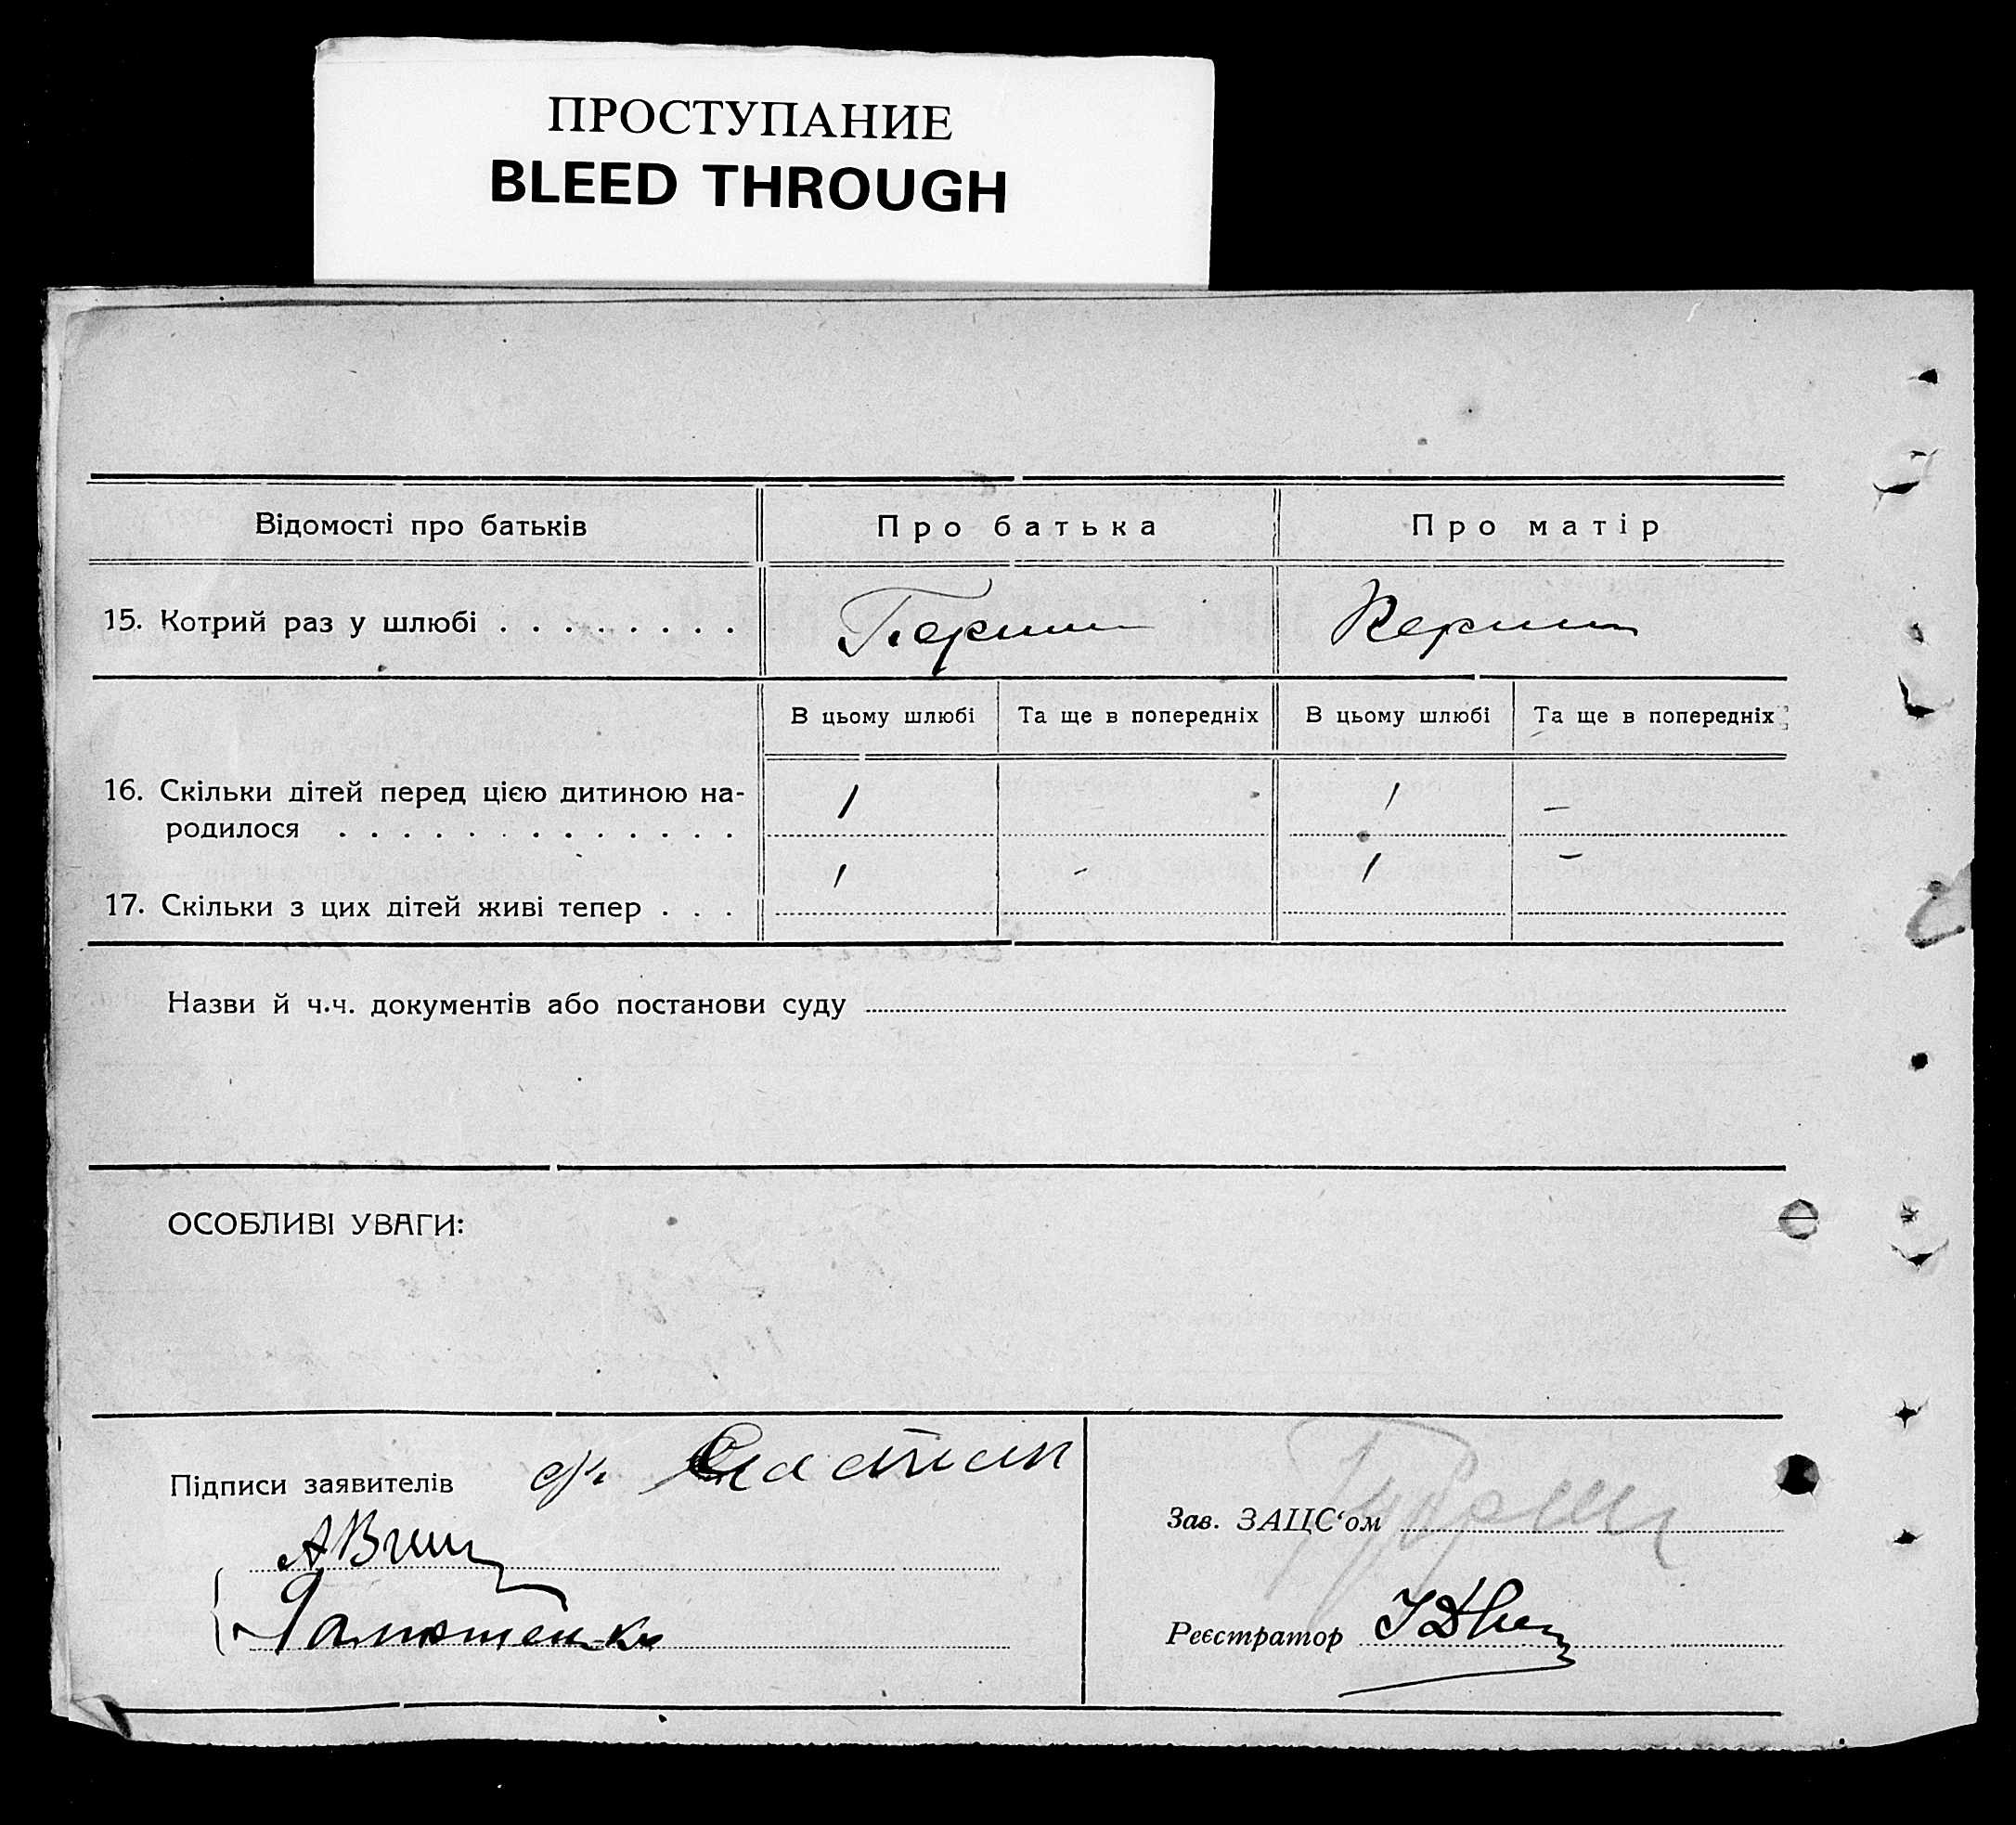 ПРОСТУПАНИЕ
BLEED THROUGH
Відомості про батьків Про батька Про матір
15. Котрий раз у шлюбі . . . . . . . .
В цьому шлюбі Та ще в попередніх В цьому шлюбі Та ще в попередніх
16. Скільки дітей перед цією дитиною на-
родилося . . . . . . . . . . . . . 1 1 —
17. Скільки з цих дітей живі тепер . . . 1 - 1 —
Назви й ч.ч. документів або постанови суду
ОСОБЛИВІ УВАГИ:
Підписи заявителів
Зав. ЗАЦС‘ом
Реєстратор